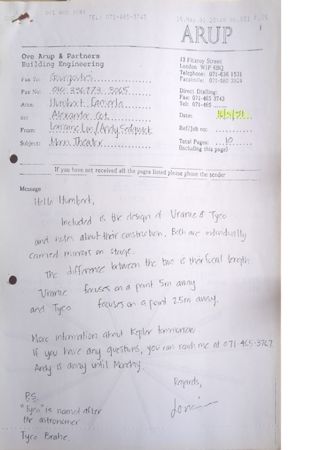 TEL: 071-465-3743
ARUP
Ove Arup & Partners
Building Engineering
13 Fitzroy Street
London W1P 6BQ
Telephone: 071-636 1531
Facsimile: 071-580 3924
Fax To:
Fax No:
Direct Dialling:
Fax: 071-465 3743
Tel: 071-465
Attn: Humbert
cc: Alexander
Date:
From: Lorraine Lin / Andy Sedgwick
Ref/Job no:
Subject: Moon Theatre
Total Pages: 10
(including this page)
If you have not received all the pages listed please phone the sender
Message
Hello Humbert,
Included is the design of Uranie & Tyco
and notes about their construction. Both are individually
carried mirrors on stage.
The difference between the two is their focal length.
Uranie focuses on a point 5m away
and Tyco focuses on a point 25m away.
More information about Kepler tomorrow.
If you have any questions, you can reach me at 071-465-3767.
Andy is away until Monday.
Regards,
P.S.
"Tyco" is named after
the astronomer
Tyco Brahe.